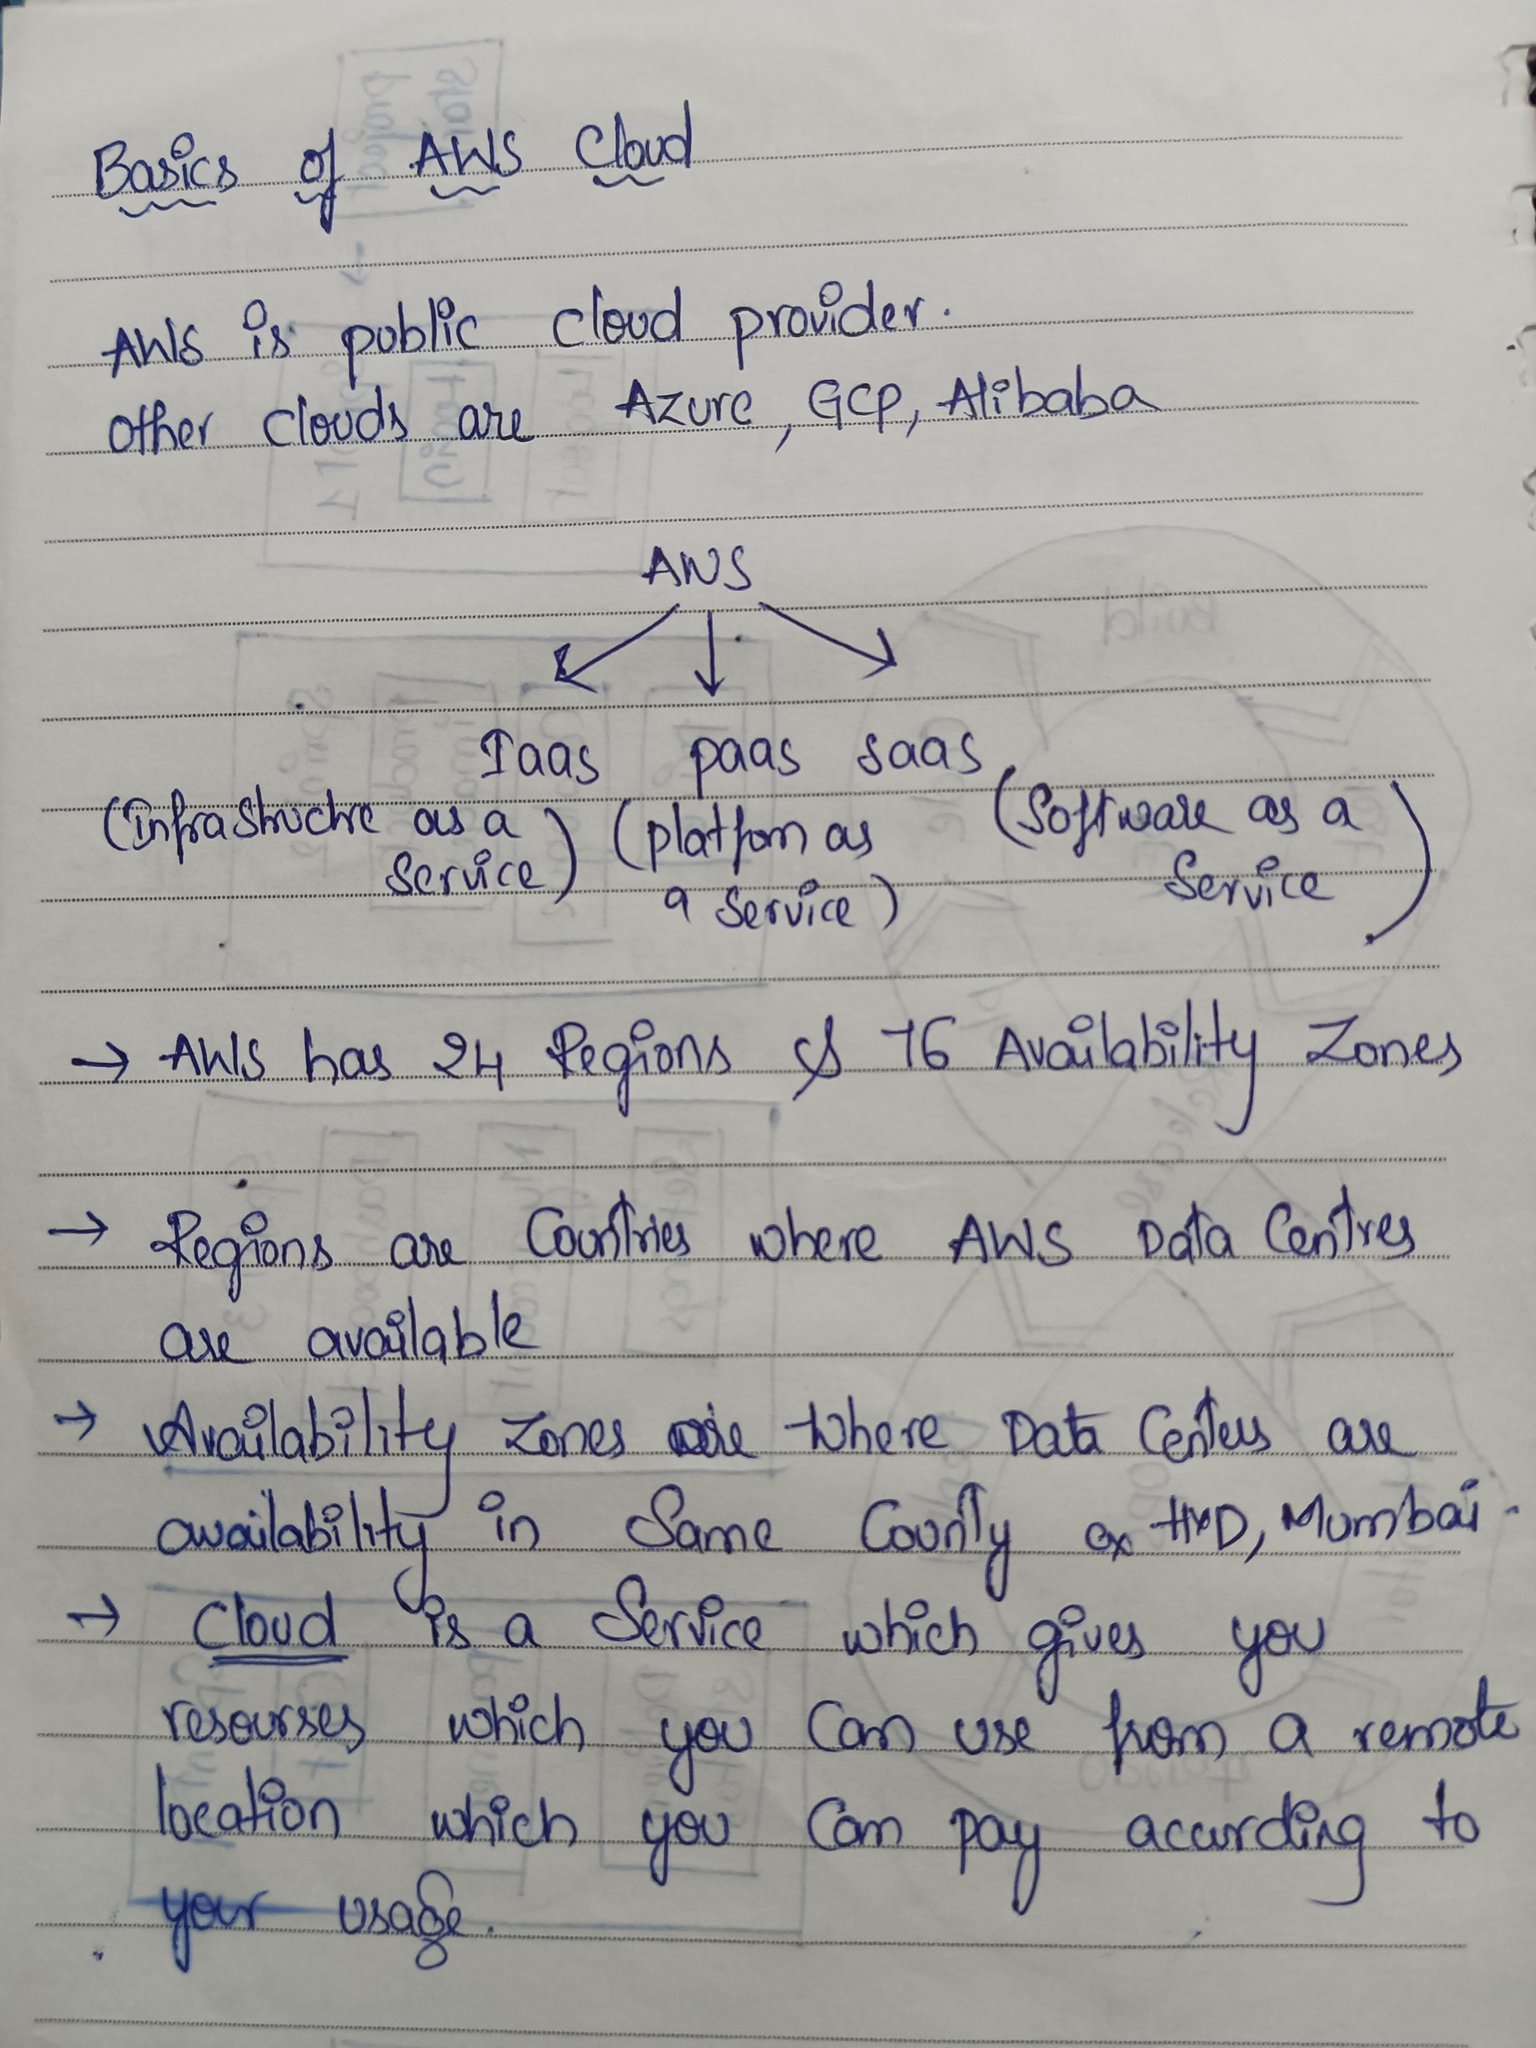 Basics of AWS Cloud
AWS is public cloud provider.
other clouds are Azure, GCP, Alibaba
AWS
Iaas paas saas
(infrastructre as a service) (platfom as a service) (software as a service)
→ AWS has 24 Regions & 76 Availability Zones
→ Regions are Countries where AWS Data Centres
are available
→ Availability Zones are where Data Centers are
availability in Same County ex HYD, Mumbai.
→ Cloud is a Service which gives you
resourses which you Can use from a remote
location which you Can pay according to
your usage.